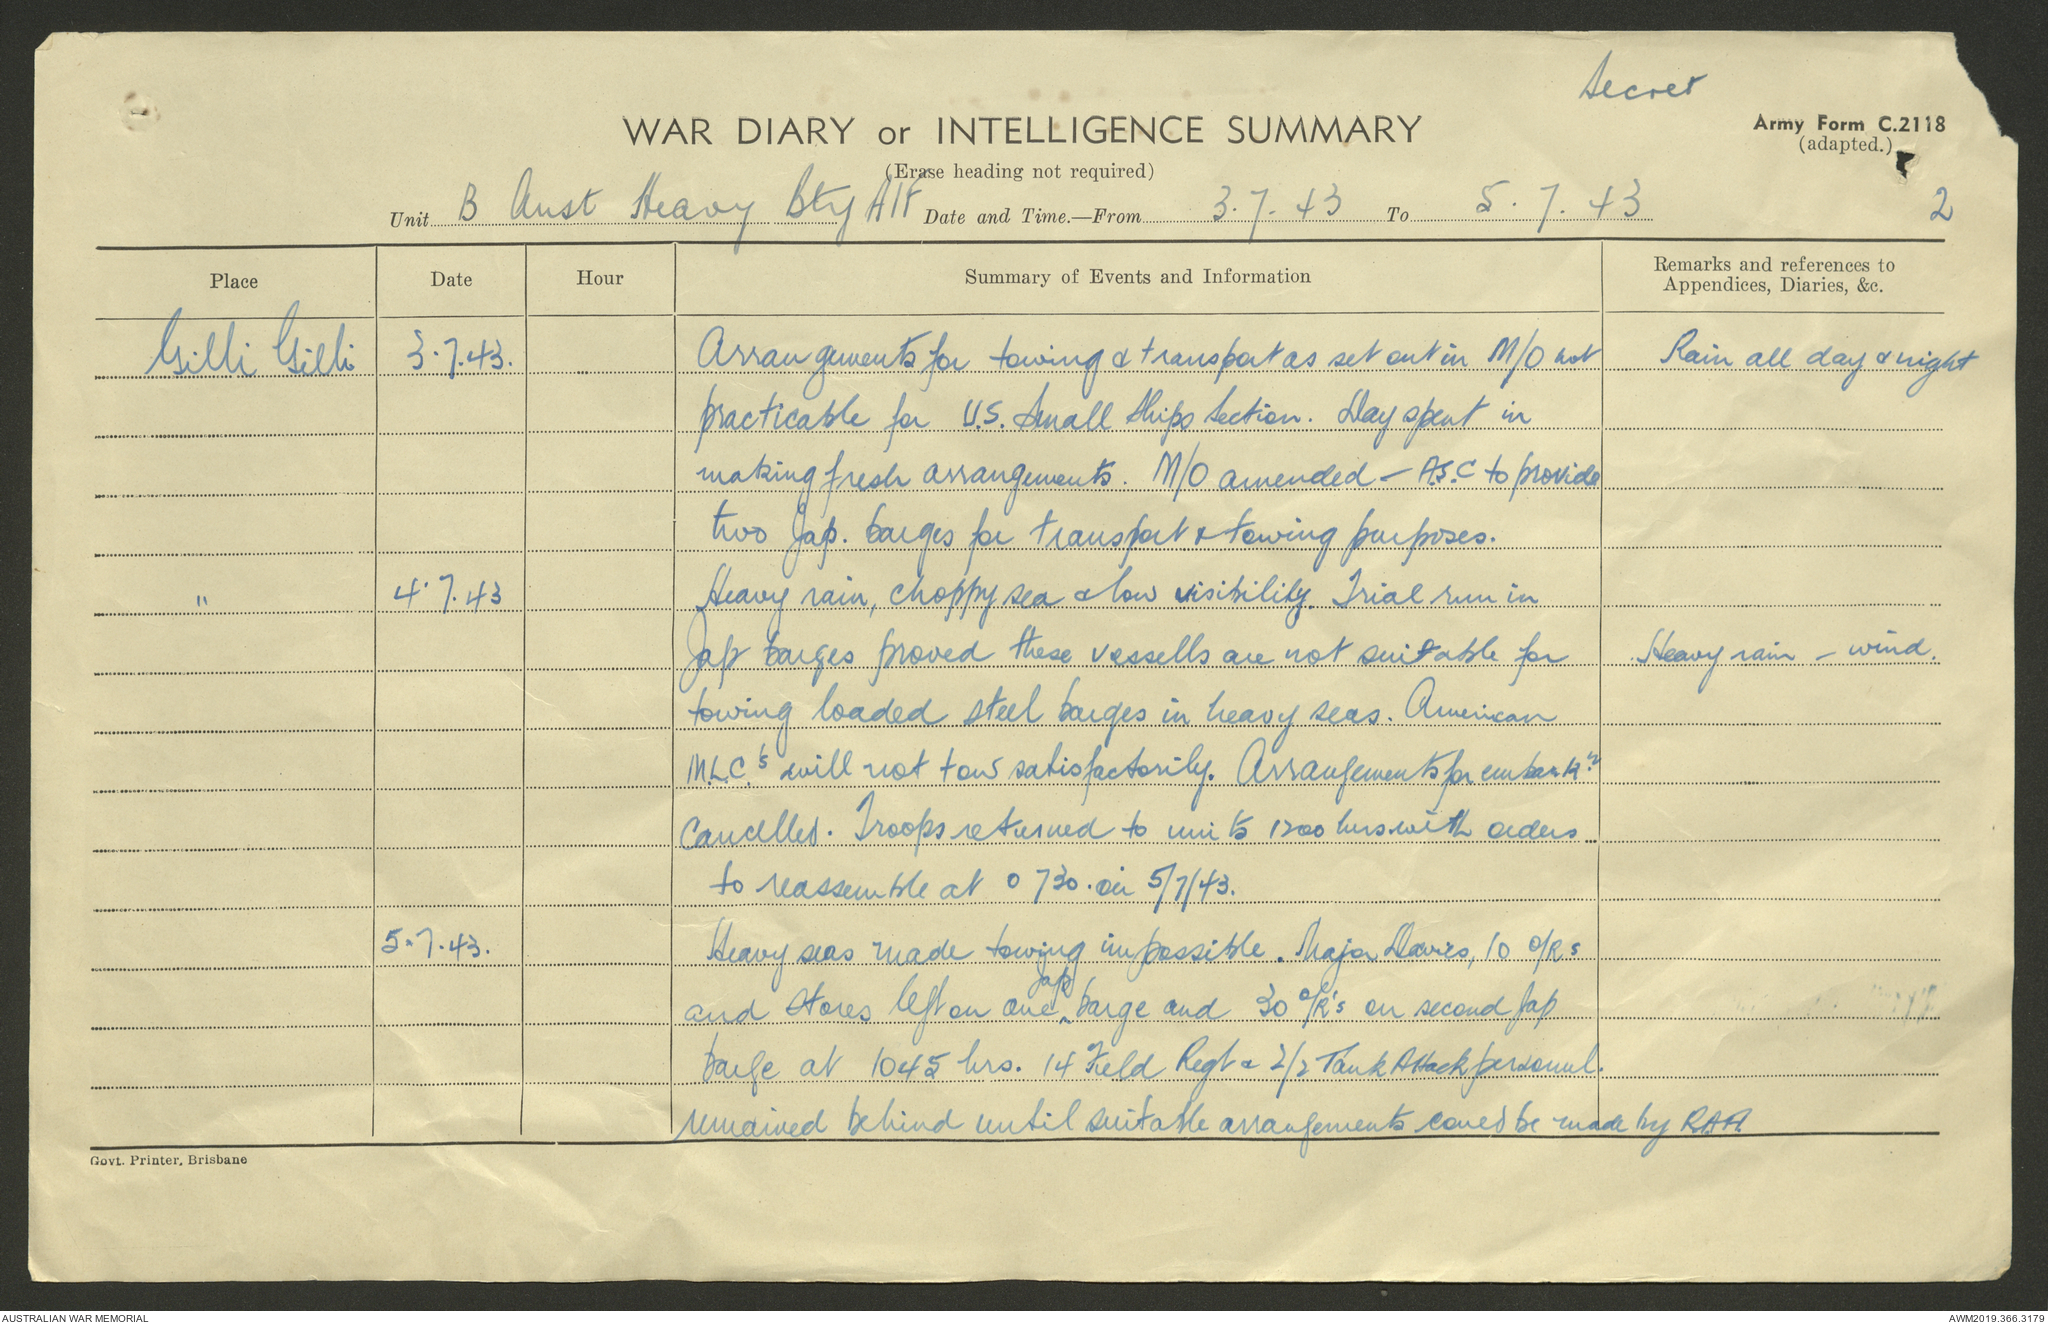 Secret
WAR DIARY or INTELLIGENCE SUMMARY
Army Form C.2118
(adapted.)
(Erase heading not required)
Unit B Aust Heavy Bty AIF Date and Time.—From 3.7.43 To 5.7.43
2
Place Date Hour Summary of Events and Information Remarks and references to Appendices, Diaries, &c.
Gilli Gilli 3.7.43. Arrangements for towing & transport as set out in M/O not Rain all day & night
practicable for U.S. Small Ships Section. Day spent in
making fresh arrangements. M/O amended - A.S.C to provide
two Jap. barges for transport & towing purposes.
" 4.7.43 Heavy rain, choppy sea & low visibility. Trial run in
Jap barges proved these vessells are not suitable for Heavy rain - wind.
towing loaded steel barges in heavy seas. American
M.L.C.'s will not tow satisfactorily. Arrangements for embark'n
cancelled. Troops returned to units 1200 hrs with orders
to reassemble at 0730. on 5/7/43.
5.7.43. Heavy seas made towing impossible. Major Davies, 10 O/Rs
and stores left on one Jap barge and 30 O/R's on second Jap
barge at 1045 hrs. 14 Field Regt & 2/2 Tank Attack personnel.
remained behind until suitable arrangements could be made by R.A.A.
Govt. Printer, Brisbane
AUSTRALIAN WAR MEMORIAL
AWM2019.366.3179